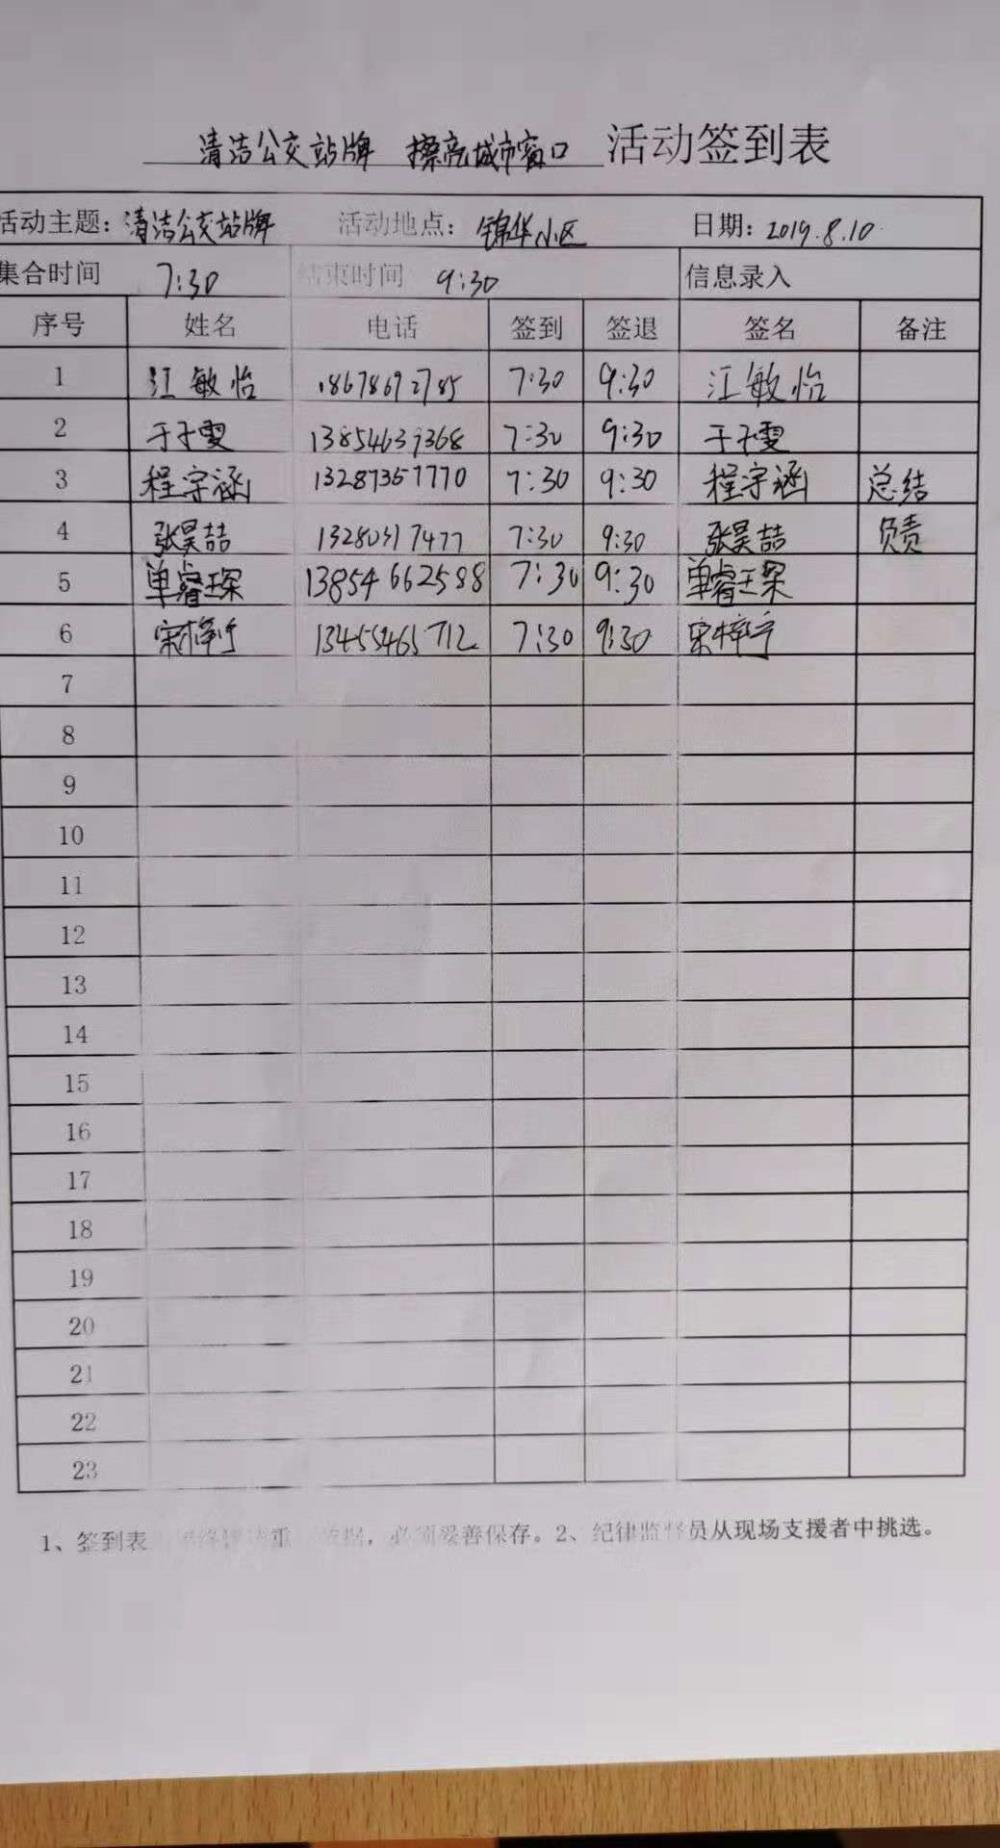 清洁公交站牌 擦亮城市窗口 活动签到表
活动主题：清洁公交站牌 活动地点：锦华小区 日期：2019.8.10
集合时间 7:30 结束时间 9:30 信息录入
序号 姓名 电话 签到 签退 签名 备注
1 江敏怡 18678692785 7:30 9:30 江敏怡
2 于子雯 13854639368 7:30 9:30 于子雯
3 程宇涵 13287357770 7:30 9:30 程宇涵 总结
4 张昊喆 13280317477 7:30 9:30 张昊喆 负责
5 单睿琛 13854662588 7:30 9:30 单睿琛
6 宋梓宁 13455465712 7:30 9:30 宋梓宁
7
8
9
10
11
12
13
14
15
16
17
18
19
20
21
22
23
1、签到表 重 数据，必须妥善保存。2、纪律监督员从现场支援者中挑选。